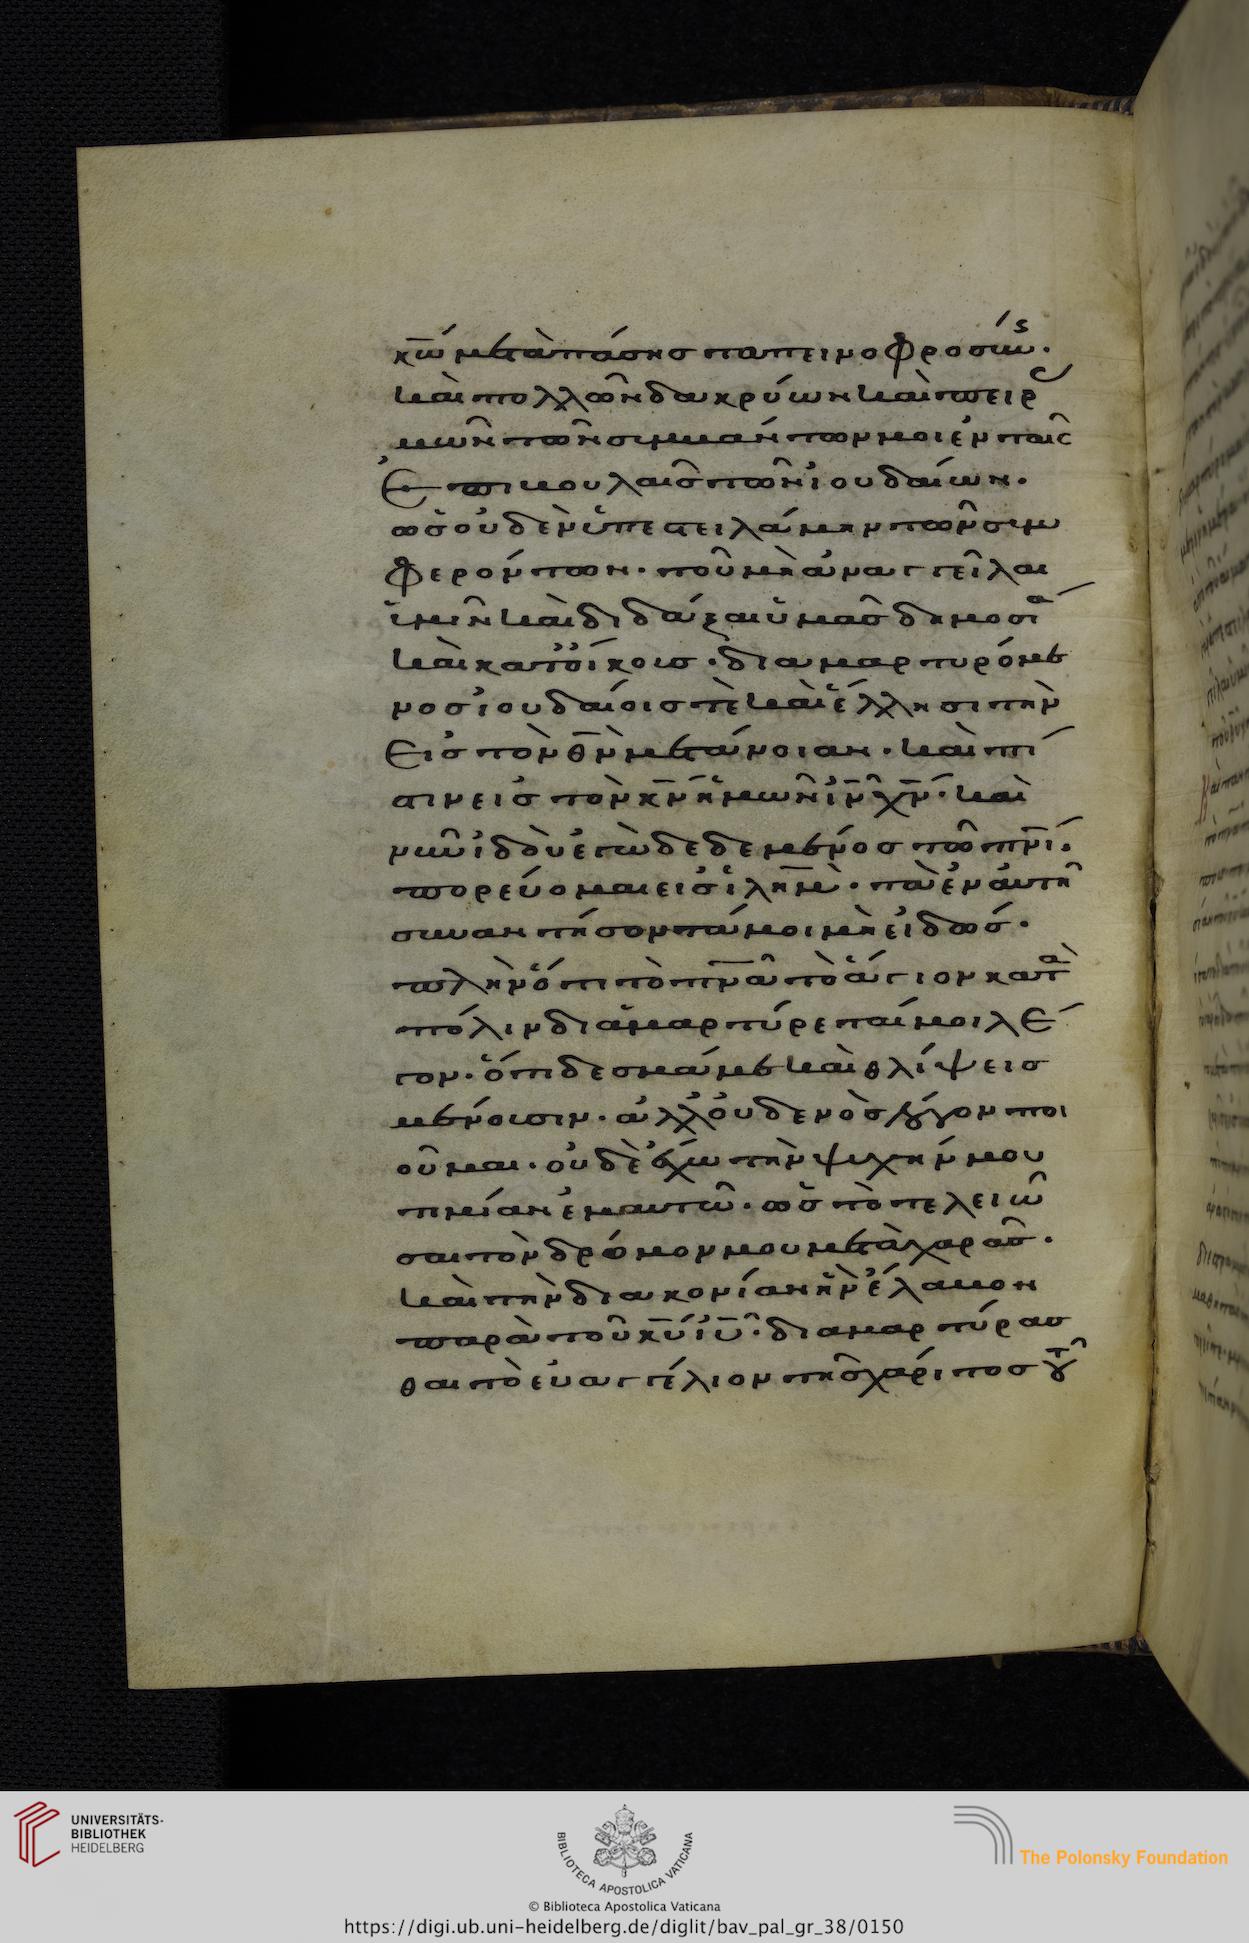 κ̅ω̅ μετὰ πάσης ταπεινοφροσύν·
καὶ πολλῶν δακρύων καὶ πειρ
μῶν τῶν συμβάντων μοι ἐν ταῖς
ἐπιβουλαῖς τῶν ἰουδαίων·
ὡς οὐδὲν ὑπεστειλάμην τῶν συμ
φερόντων· τοῦ μὴ ἀναγγεῖλαι
ὑμῖν καὶ διδάξαι ὑμᾶς δημοσί
καὶ κατ' οίκους· διαμαρτυρόμε
νος ἰουδαίοις τὲ καὶ ἕλλησι τὴν
εἰς τὸν θ̅ν̅ μετάνοιαν· καὶ πί
στιν εἰς τὸν κ̅ν̅ ἡμῶν ι̅ν̅ χ̅ν̅· καὶ
νῦν ἰδοὺ ἐγὼ δεδεμένος τῶ π̅ν̅ι̅·
πορεύομαι εἰς ἱ̅λ̅η̅μ̅· τὰ ἐν αὐτῆ
συναντήσοντά μοι μὴ εἰδώς·
πλὴν ὅτι τὸ π̅ν̅α̅ τὸ ἅγιον κατὰ
πόλιν διαμαρτύρεταί μοι λέ
γον· ὅτι δεσμά με καὶ θλίψεις
μένουσιν· ἀλλ' οὐδενὸς λόγον ποι
οῦμαι· οὐδὲ ἔχω τὴν ψυχήν μου
τιμίαν ἐμαυτῶ· ὡς τὸ τελειῶ
σαι τὸν δρόμον μου μετὰ χαρᾶς·
καὶ τὴν διακονίαν ἣν ἔλαβον
παρὰ τοῦ κ̅υ̅ ι̅υ̅· διαμαρτύρασ
θαι τὸ εὐαγγέλιον τῆς χάριτος τοῦ
UNIVERSITÄTS-
BIBLIOTHEK
HEIDELBERG
BIBLIOTECA APOSTOLICA VATICANA
The Polonsky Foundation
© Biblioteca Apostolica Vaticana
https://digi.ub.uni-heidelberg.de/diglit/bav_pal_gr_38/0150